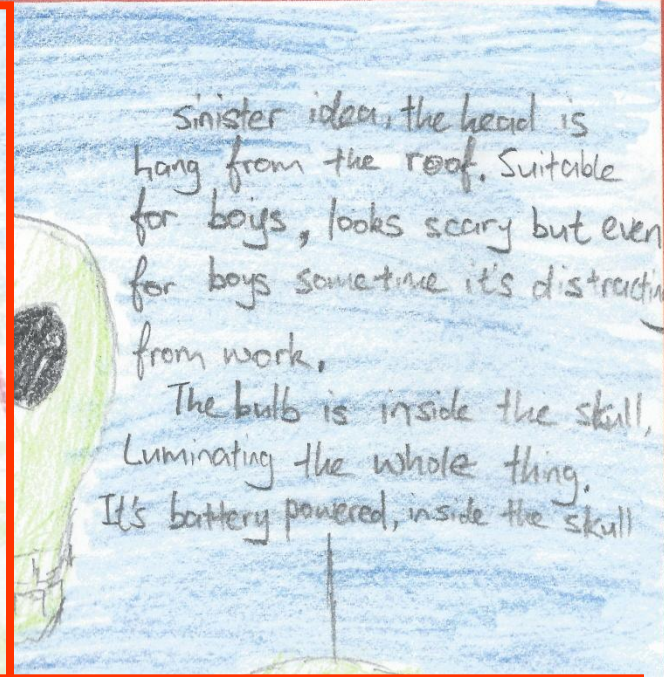 Sinister idea, the head is
hang from the roof. Suitable
for boys, looks scary but even
for boys sometime it's distractin
from work.
The bulb is inside the skull,
Luminating the whole thing.
It's battery powered, inside the skull